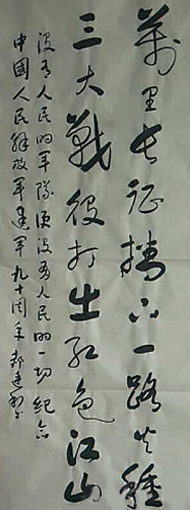 萬里长征播下一路火種
三大戰役打出红色江山
没有人民的军隊便没有人民的一切纪念
中國人民解放军建军九十周年